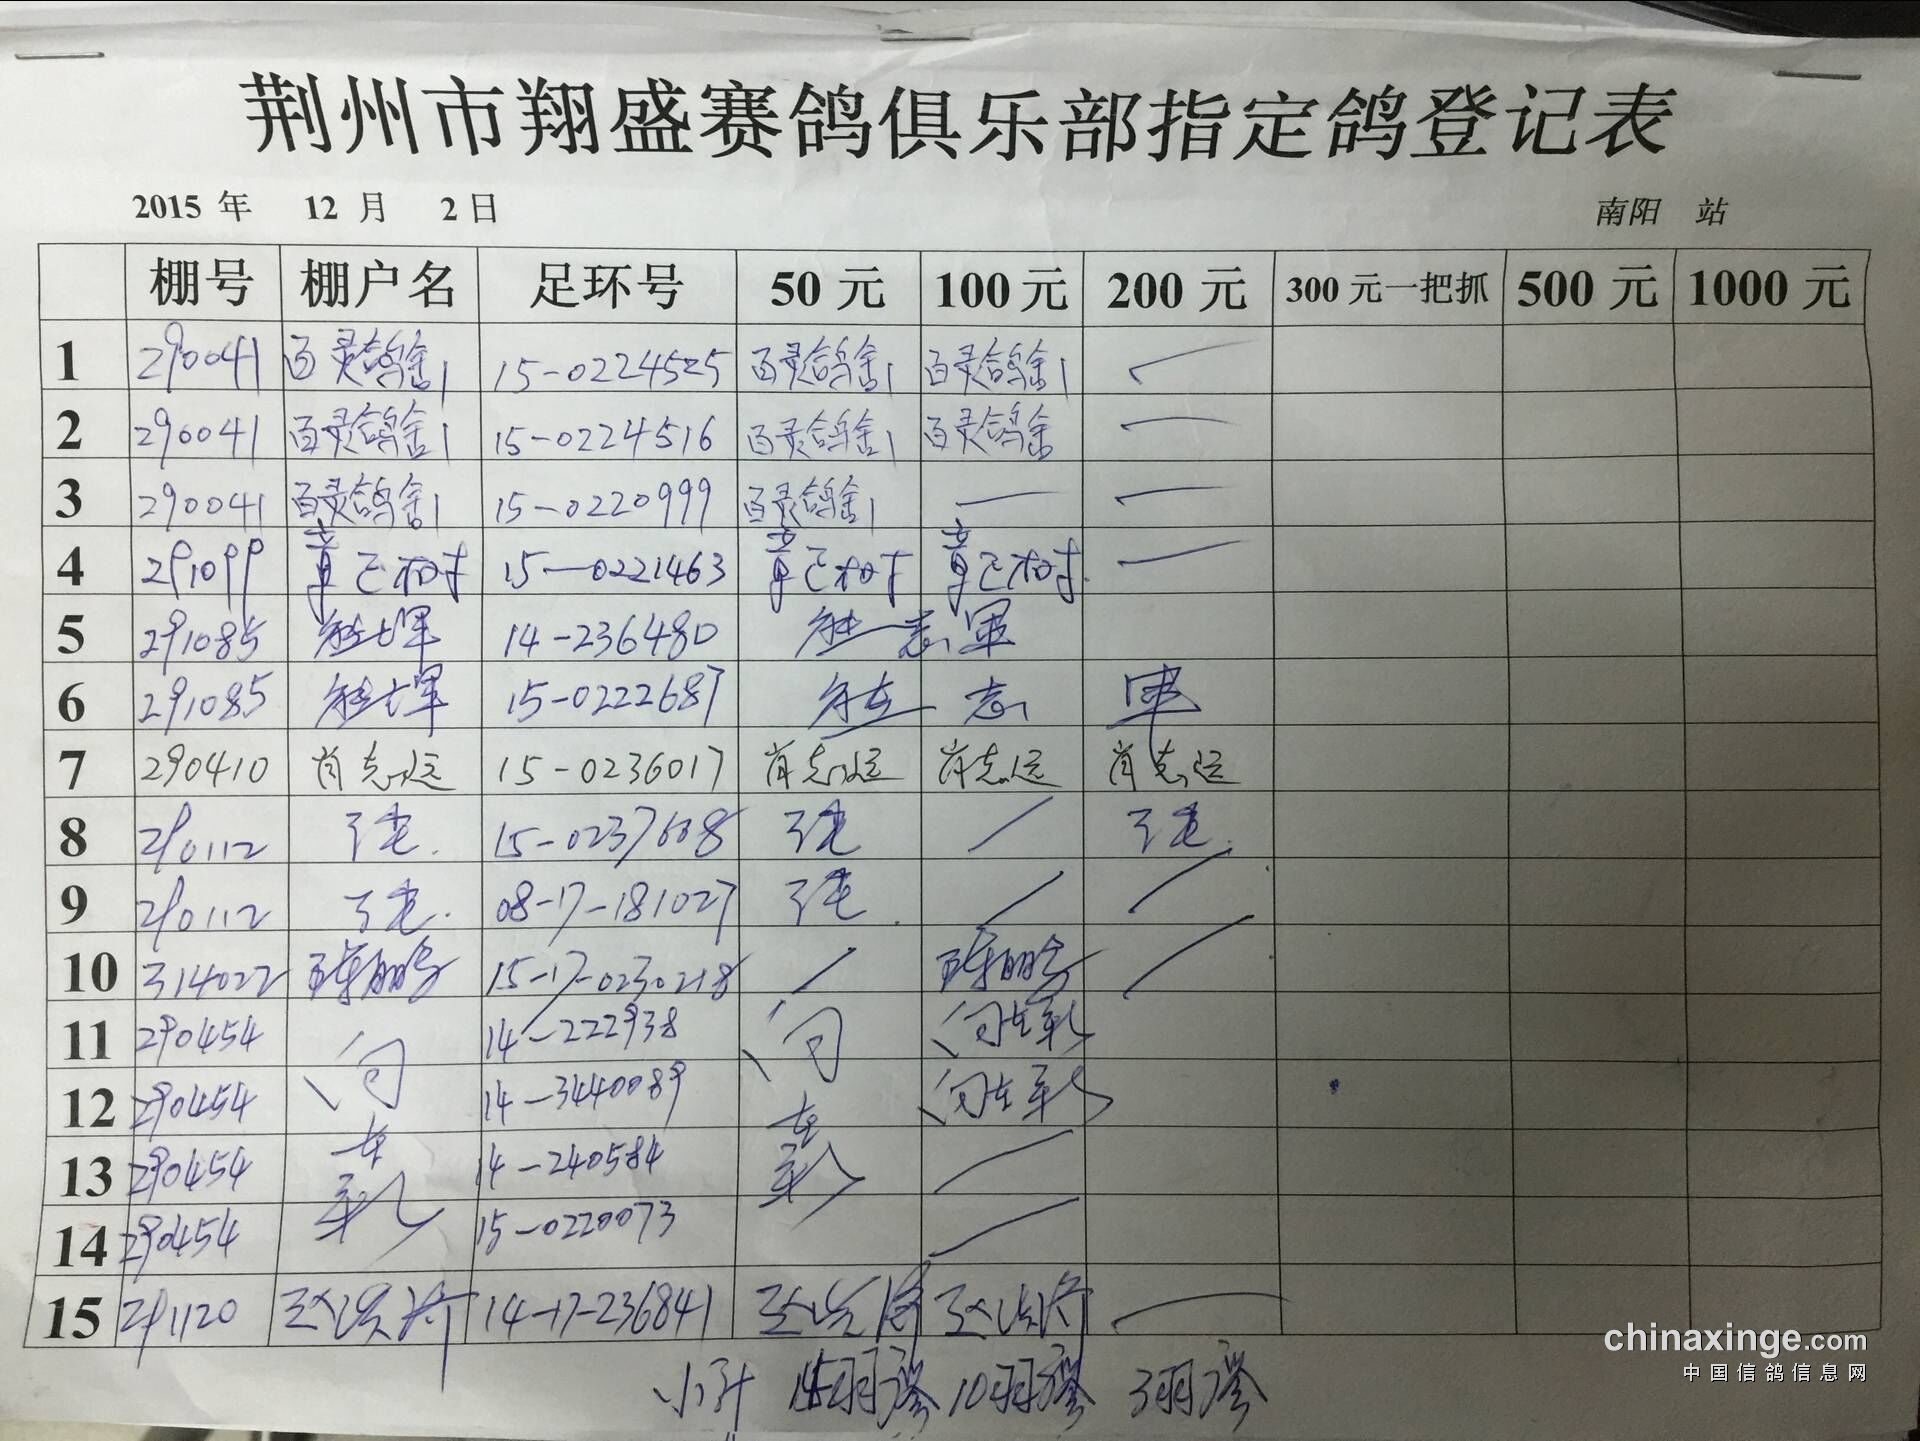 荆州市翔盛赛鸽俱乐部指定鸽登记表
2015 年 12 月 2 日 南阳 站
棚号 棚户名 足环号 50 元 100 元 200 元 300 元一把抓 500 元 1000 元
1 290041 百灵鸽舍1 15-0224525 百灵鸽舍1 百灵鸽舍1 —
2 290041 百灵鸽舍1 15-0224516 百灵鸽舍1 百灵鸽舍 —
3 290041 百灵鸽舍1 15-0220999 百灵鸽舍1 — —
4 291099 15-0221463 —
5 291085 14-236480 熊志军
6 291085 15-0222687 熊志军
7 290410 肖志运 15-0236017 肖志运 肖志运 肖志运
8 290112 15-0237608 /
9 290112 08-17-181027 / /
10 314022 陈鹏 15-17-0230218 / 陈鹏 /
11 290454 向 14-222938 向
12 290454 14-3440089
13 290454 14-240584 /
14 290454 15-0220073 /
15 291120 14-17-236841 —
小计 羽 10羽 3羽
chinaxinge.com
中国信鸽信息网